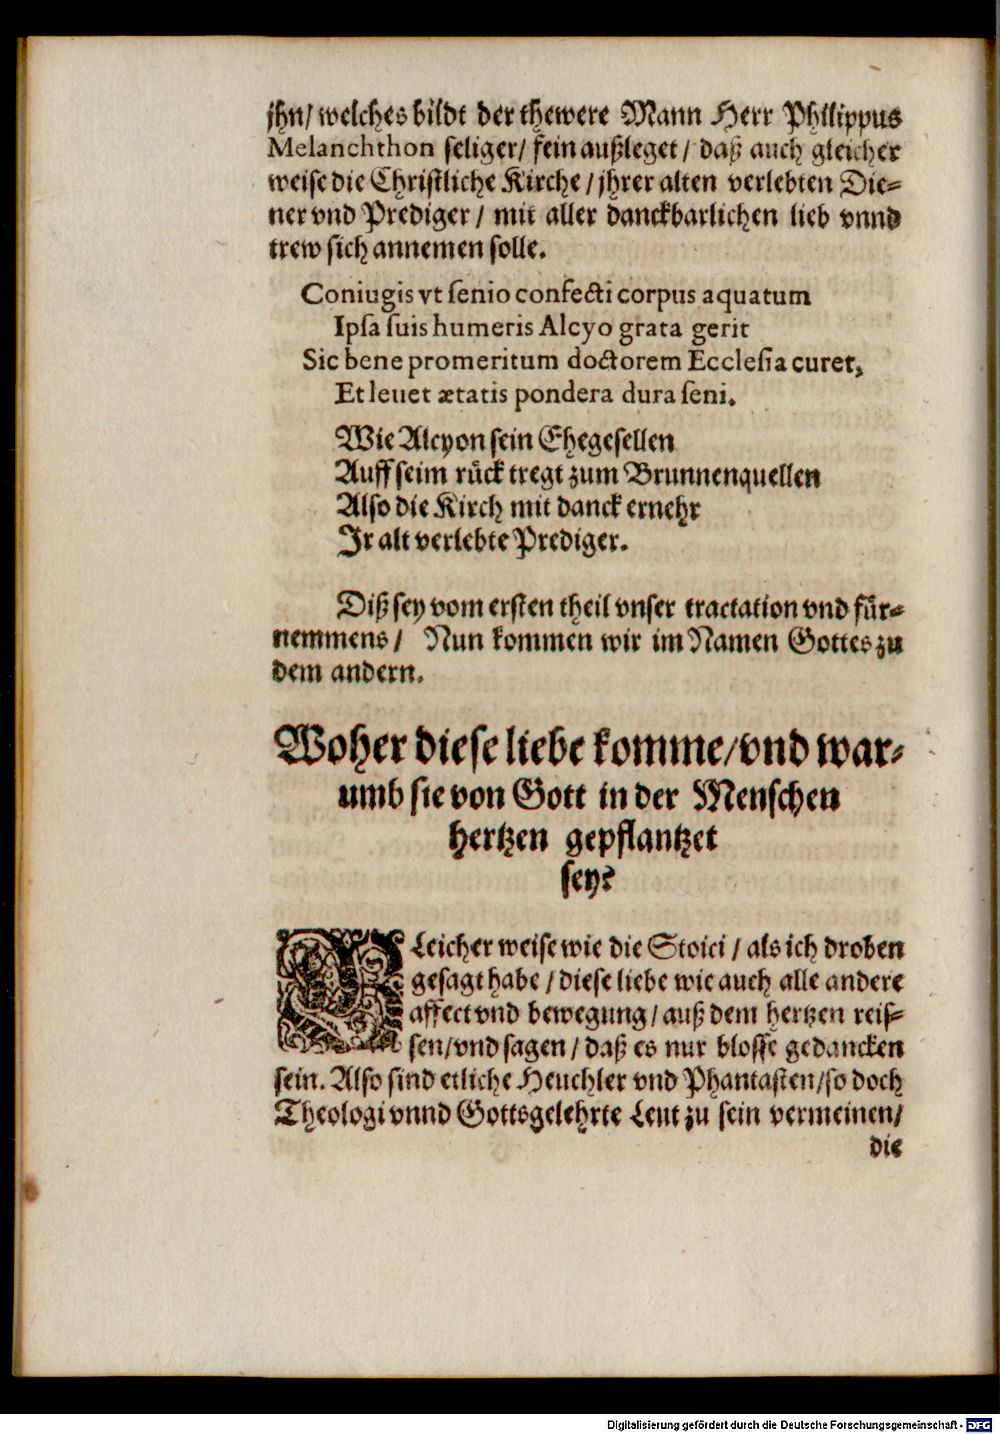 jhn/ welches bildt der thewere Mann Herr Philippus
Melanchthon seliger/ fein außleget/ daß auch gleicher
weise die Christliche Kirche/ jhrer alten verlebten Die⸗
ner vnd Prediger/ mit aller danckbarlichen lieb vnnd
trew sich annemen solle.
Coniugis vt senio confecti corpus aquatum
Ipsa suis humeris Alcyo grata gerit
Sic bene promeritum doctorem Ecclesia curet,
Et leuet ætatis pondera dura seni.
Wie Alcyon sein Ehegesellen
Auff seim růck tregt zum Brunnenquellen
Also die Kirch mit danck ernehr
Jr alt verlebte Prediger.
Diß sey vom ersten theil vnser tractation vnd für⸗
nemmens/ Nun kommen wir im Namen Gottes zu
dem andern.
Woher diese liebe komme/ vnd war⸗
umb sie von Gott in der Menschen
hertzen gepflantzet
sey?
GLeicher weise wie die Stoici/ als ich droben
gesagt habe/ diese liebe wie auch alle andere
affect vnd bewegung/ auß dem hertzen reis⸗
sen/ vnd sagen/ daß es nur blosse gedancken
sein. Also sind etliche Heuchler vnd Phantasten/ so doch
Theologi vnnd Gottsgelehrte Leut zu sein vermeinen/
die
Digitalisierung gefördert durch die Deutsche Forschungsgemeinschaft - DFG